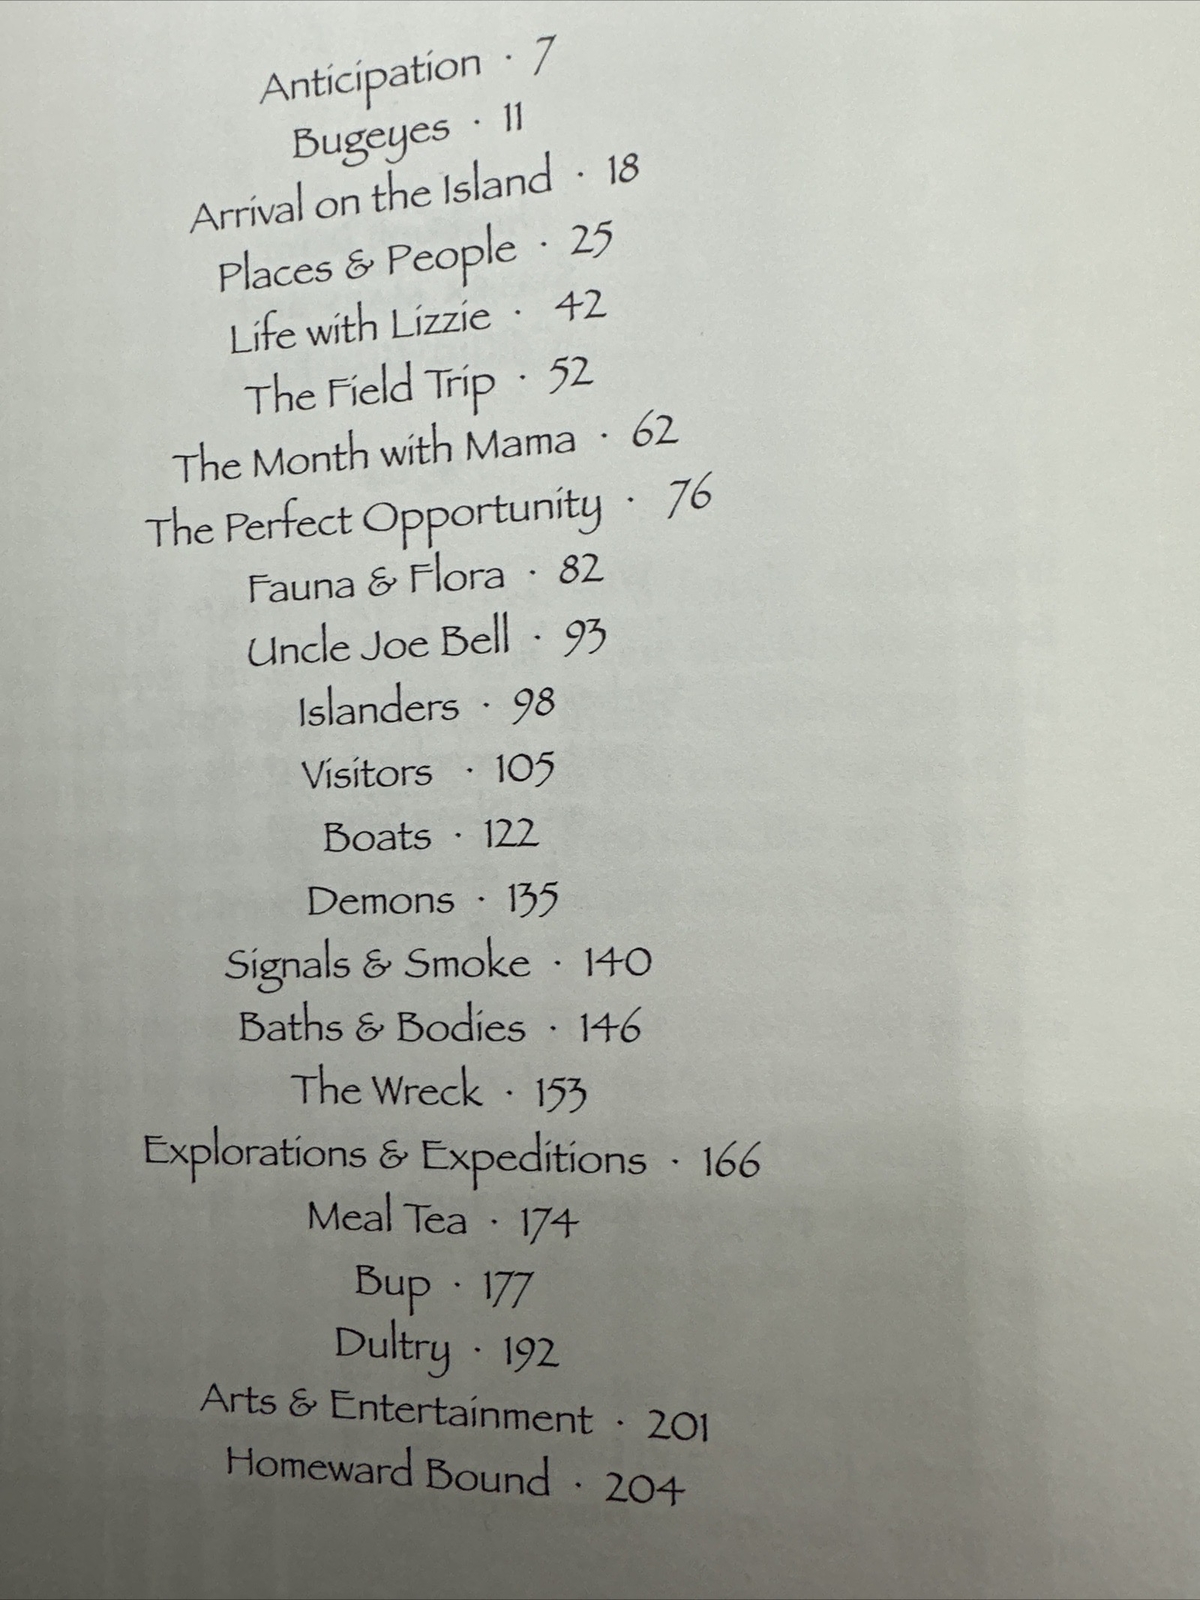 Anticipation · 7
Bugeyes · 11
Arrival on the Island · 18
Places & People · 25
Life with Lizzie · 42
The Field Trip · 52
The Month with Mama · 62
The Perfect Opportunity · 76
Fauna & Flora · 82
Uncle Joe Bell · 93
Islanders · 98
Visitors · 105
Boats · 122
Demons · 135
Signals & Smoke · 140
Baths & Bodies · 146
The Wreck · 153
Explorations & Expeditions · 166
Meal Tea · 174
Bup · 177
Dultry · 192
Arts & Entertainment · 201
Homeward Bound · 204